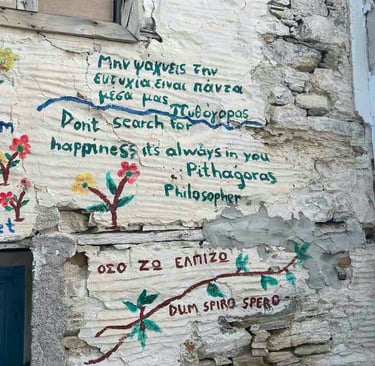 Μην ψαχνεις την
ευτυχία. είναι πάντα
μέσα μας
Πυθαγορας
Dont search for
happiness, it's always in you
Pithagoras
Philosopher
ΟΣΟ ΖΩ ΕΛΠΙΖΩ
DUM SPIRO SPERO